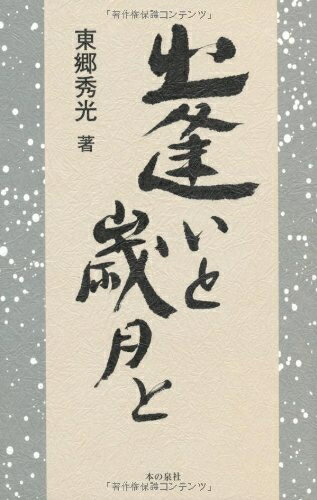 「著作権保護コンテンツ」
出逢いと
歳月と
東郷秀光 著
本の泉社
「著作権保護コンテンツ」